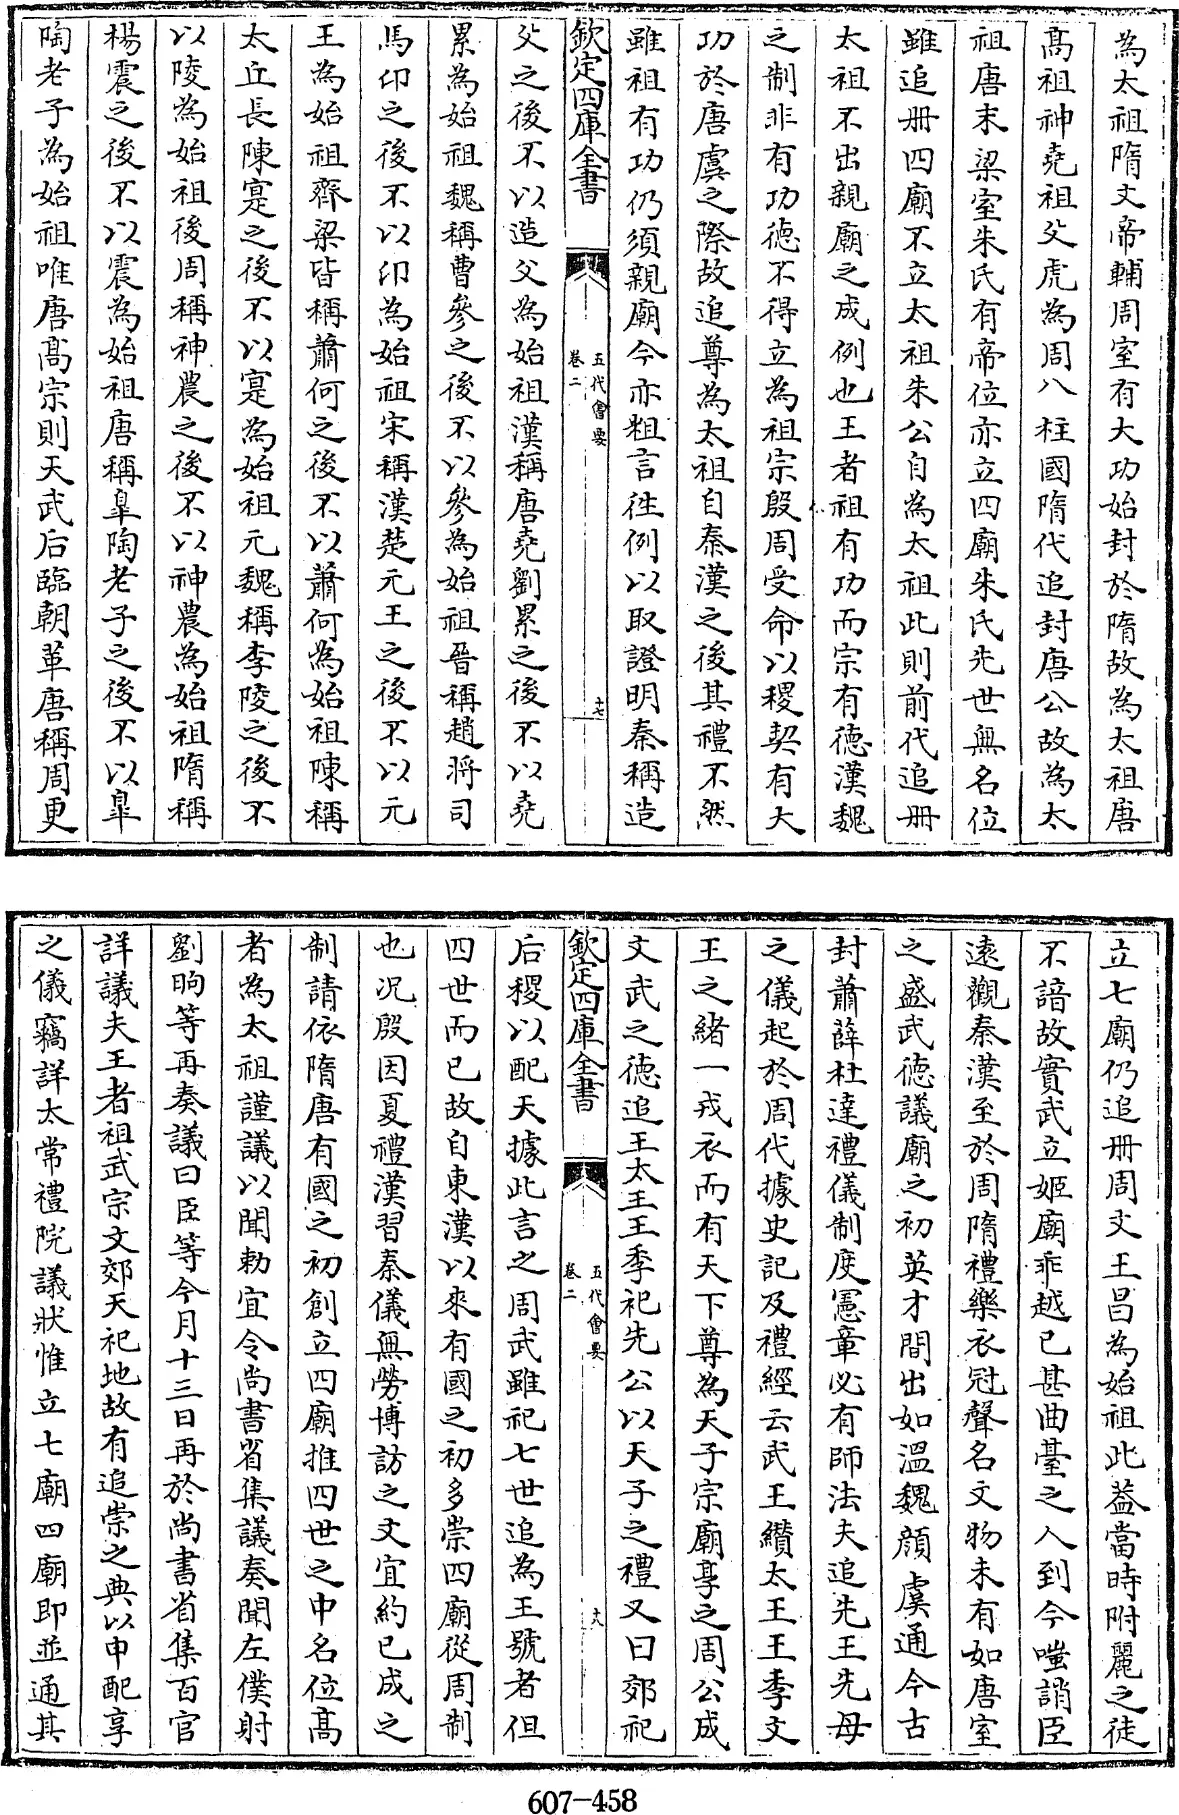 為太祖隋文帝輔周室有大功始封於隋故為太祖唐
高祖神堯祖父虎為周八柱國隋代追封唐公故為太
祖唐末梁室朱氏有帝位亦立四廟朱氏先世無名位
雖追冊四廟不立太祖朱公自為太祖此則前代追冊
太祖不出親廟之成例也王者祖有功而宗有德漢魏
之制非有功德不得立為祖宗殷周受命以稷契有大
功於唐虞之際故追尊為太祖自秦漢之後其禮不然
雖祖有功仍須親廟今亦粗言往例以取證明秦稱造
欽定四庫全書
五代會要
卷二
十七
父之後不以造父為始祖漢稱唐堯劉累之後不以堯
累為始祖魏稱曹參之後不以參為始祖晉稱趙將司
馬卬之後不以卬為始祖宋稱漢楚元王之後不以元
王為始祖齊梁皆稱蕭何之後不以蕭何為始祖陳稱
太丘長陳寔之後不以寔為始祖元魏稱李陵之後不
以陵為始祖後周稱神農之後不以神農為始祖隋稱
楊震之後不以震為始祖唐稱臯陶老子之後不以臯
陶老子為始祖唯唐高宗則天武后臨朝革唐稱周更
立七廟仍追冊周文王昌為始祖此葢當時附麗之徒
不諳故實武立姬廟乖越已甚曲臺之人到今嗤誚臣
遠觀秦漢至於周隋禮樂衣冠聲名文物未有如唐室
之盛武德議廟之初英才間出如溫魏顏虞通今古
封蕭薛杜達禮儀制度憲章必有師法夫追先王先母
之儀起於周代據史記及禮經云武王纘太王王季文
王之緒一戎衣而有天下尊為天子宗廟享之周公成
文武之德追王太王王季祀先公以天子之禮又曰郊祀
欽定四庫全書
五代會要
卷二
十八
后稷以配天據此言之周武雖祀七世追為王號者但
四世而已故自東漢以來有國之初多崇四廟從周制
也况殷因夏禮漢習秦儀無勞博訪之文宜約已成之
制請依隋唐有國之初創立四廟推四世之中名位高
者為太祖謹議以聞勅宜令尚書省集議奏聞左僕射
劉昫等再奏議曰臣等今月十三日再於尚書省集百官
詳議夫王者祖武宗文郊天祀地故有追崇之典以申配享
之儀竊詳太常禮院議狀惟立七廟四廟即並通其
607-458